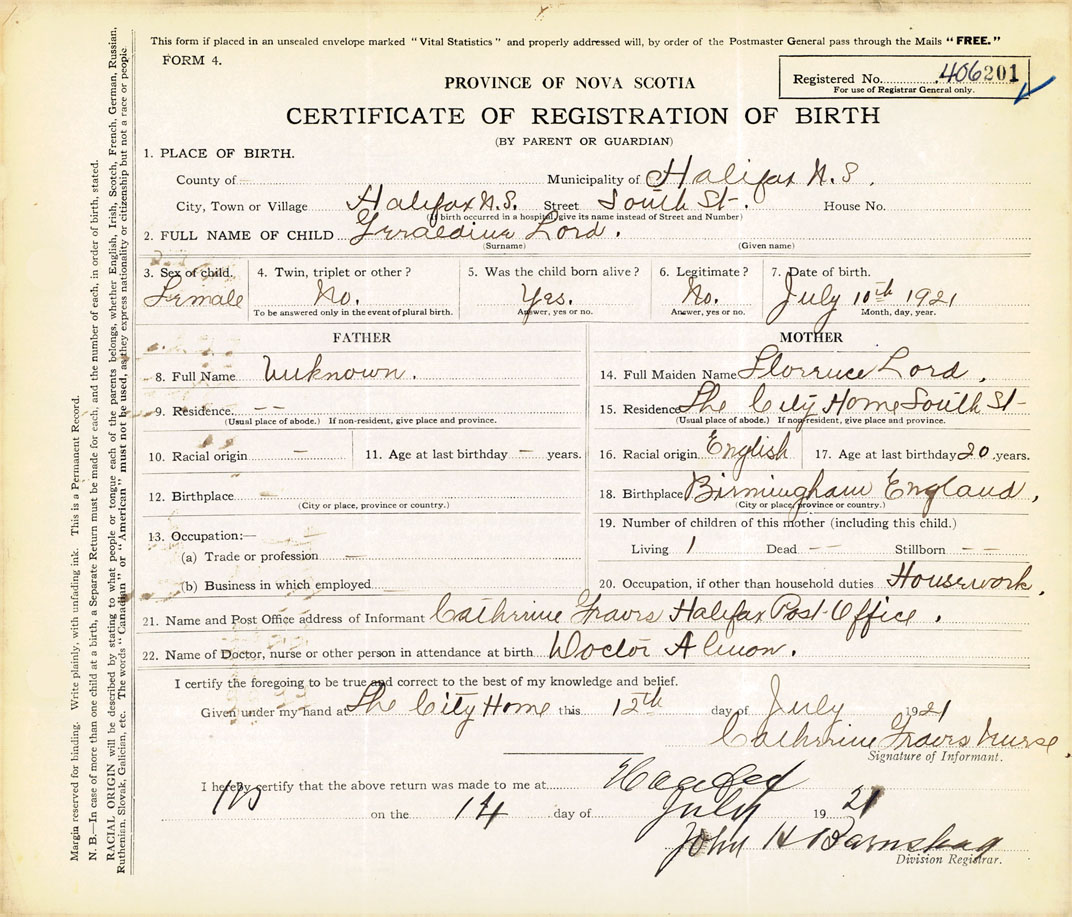 This form if placed in an unsealed envelope marked "Vital Statistics" and properly addressed will, by order of the Postmaster General pass through the Mails "FREE."
FORM 4.
Registered No. 406201
For use of Registrar General only.
PROVINCE OF NOVA SCOTIA
CERTIFICATE OF REGISTRATION OF BIRTH
(BY PARENT OR GUARDIAN)
1. PLACE OF BIRTH.
County of Municipality of Halifax N.S.
City, Town or Village Halifax N.S. Street South St. House No.
(If birth occurred in a hospital, give its name instead of Street and Number)
2. FULL NAME OF CHILD Geraldine Lord.
(Surname) (Given name)
3. Sex of child. 4. Twin, triplet or other? 5. Was the child born alive? 6. Legitimate? 7. Date of birth.
Female No. Yes. No. July 10th 1921
To be answered only in the event of plural birth. Answer, yes or no. Answer, yes or no. Month, day, year.
FATHER
8. Full Name Unknown.
9. Residence. — —
(Usual place of abode.) If non-resident, give place and province.
10. Racial origin — 11. Age at last birthday — years.
12. Birthplace —
(City or place, province or country.)
13. Occupation:—
(a) Trade or profession —
(b) Business in which employed
MOTHER
14. Full Maiden Name Florence Lord.
15. Residence The City Home South St—
(Usual place of abode.) If non-resident, give place and province.
16. Racial origin English 17. Age at last birthday 20 years.
18. Birthplace Birmingham England.
(City or place, province or country.)
19. Number of children of this mother (including this child.)
Living 1 Dead — — Stillborn — —
20. Occupation, if other than household duties Housework.
21. Name and Post Office address of Informant Cathrine Travis Halifax Post Office.
22. Name of Doctor, nurse or other person in attendance at birth Doctor Almon.
I certify the foregoing to be true and correct to the best of my knowledge and belief.
Given under my hand at The City Home this 12th day of July 1921
Cathrine Travis Nurse
Signature of Informant.
I hereby certify that the above return was made to me at
on the 14 day of July 1921
John H Barnstead
Division Registrar.
Margin reserved for binding. Write plainly, with unfading ink. This is a Permanent Record.
N. B.—In case of more than one child at a birth, a Separate Return must be made for each, and the number of each, in order of birth, stated.
RACIAL ORIGIN will be described by stating to what people or tongue each of the parents belongs, whether English, Irish, Scotch, French, German, Russian,
Ruthenian, Slovak, Galician, etc. The words "Canadian" or "American" must not be used, as they express nationality or citizenship but not a race or people.